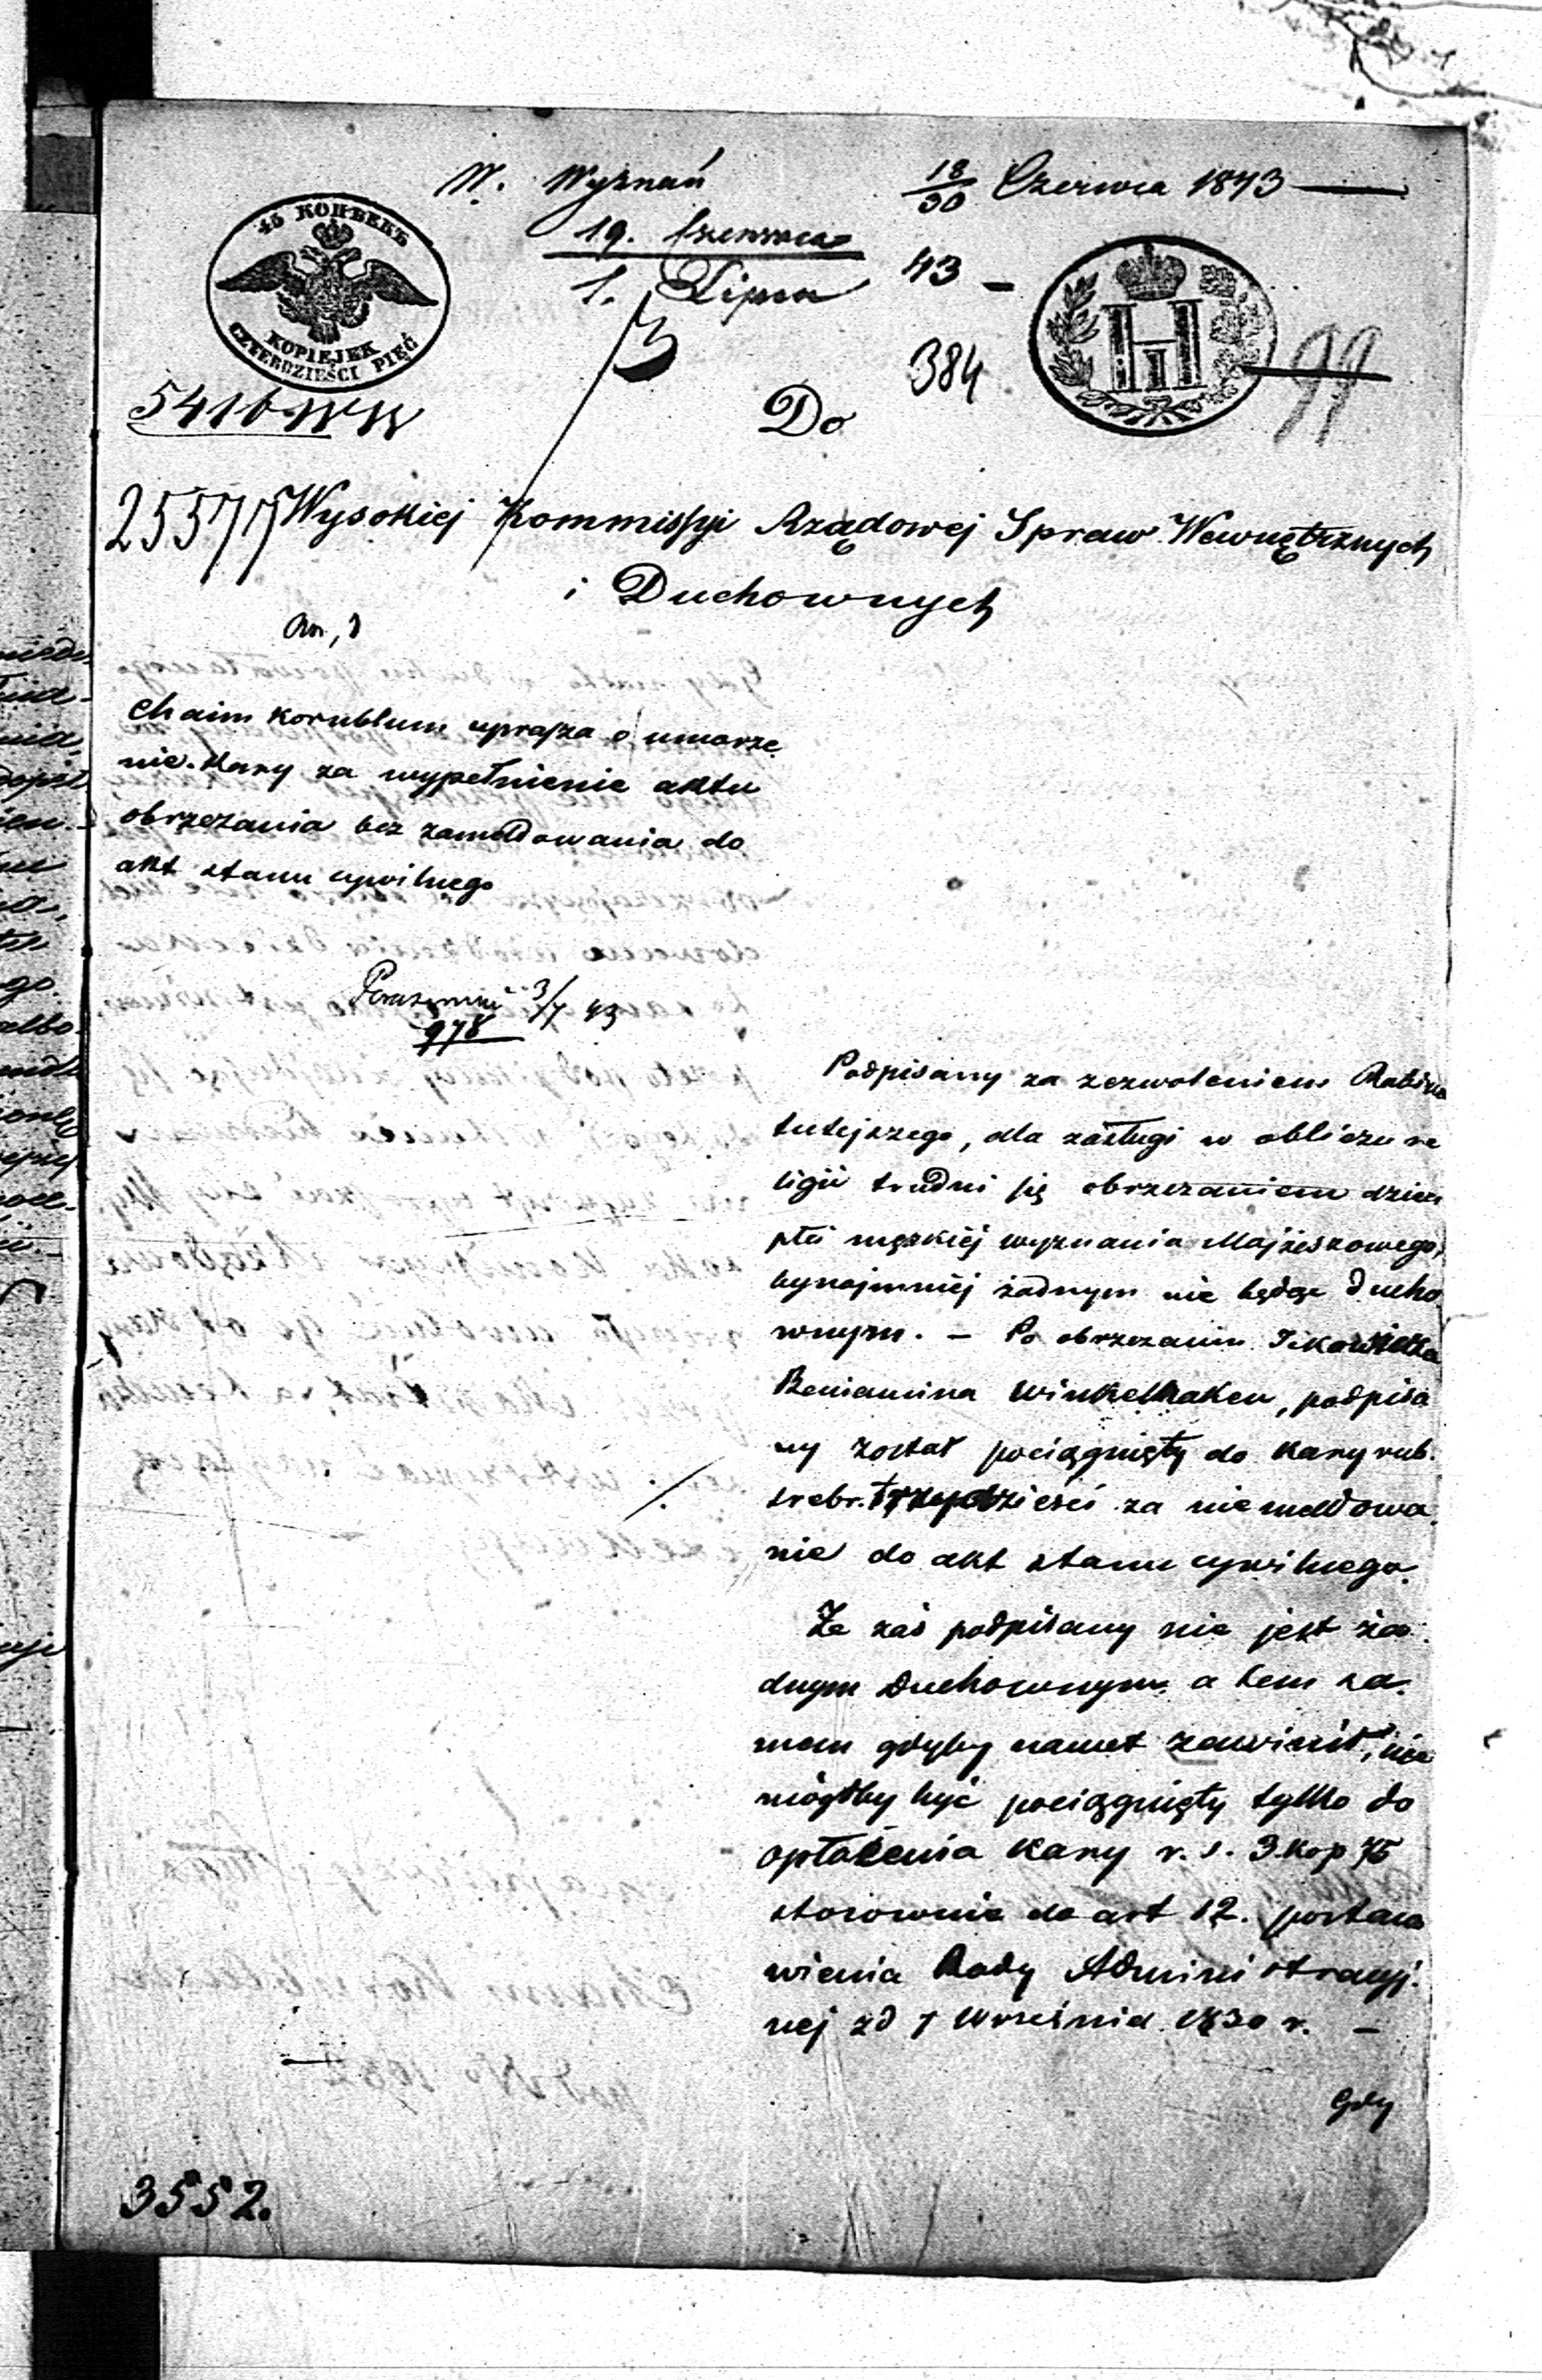 W. Wyznań
18/30 Czerwca 1843
19. Czerwca
1. Lipca
43
45 КОПѢЕКЪ
KOPIEJEK
CZTERDZIEŚCI PIĘĆ
3
384
99
5416 WW
Do
25577
Wysokiej Kommissyi Rządowej Spraw Wewnętrznych
i Duchownych
Chaim Kornblum uprasza o umorze
nie kary za wypełnienie aktu
obrzezania bez zameldowania do
akt stanu cywilnego
3/7 43
978
Podpisany za zezwoleniem Rabina
tutejszego, dla zasługi w obliczu re
ligii trudni się obrzezaniem dzieci
płci męzkiéj wyznania Mojżeszowego,
bynajmniéj żadnym nie będąc ducho
wnym. – Po obrzezaniu
Beniamina Winkelhaken, podpisa
ny został pociągnięty do kary rub.
srebr. trzydzieści za niemeldowa
nie do akt stanu cywilnego.
Że zaś podpisany nie jest ża
dnym Duchownym a tem sa
mem gdyby nawet zawinił, nie
mógłby być pociągnięty tylko do
opłacenia kary r. s. 3. kop 75
stosownie do art 12. postano
wienia Rady Administracyj
nej zd 7 Września 1830 r. –
Gdy
3552.